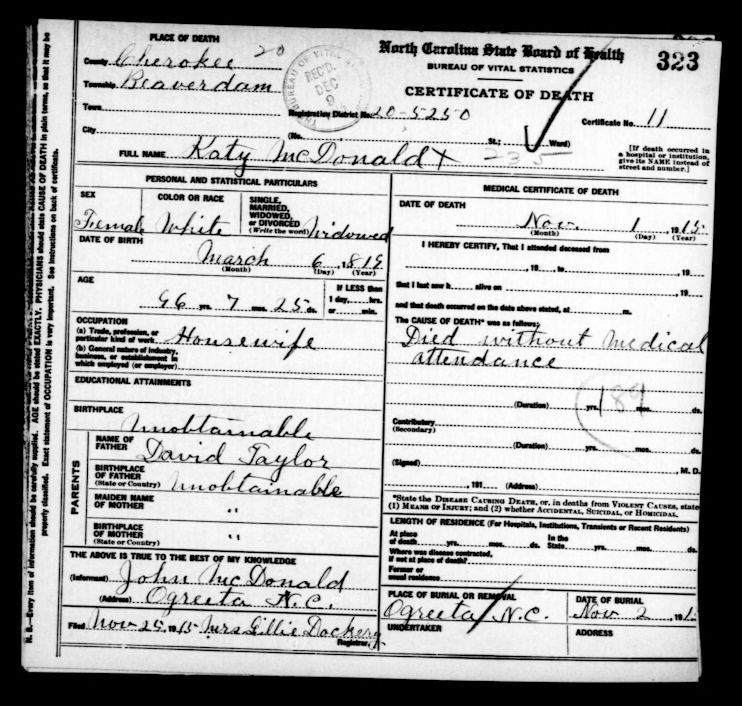 PLACE OF DEATH
County Cherokee 20
Township Beaverdam
Town
City
BUREAU OF VITAL
REC'D.
DEC
9
North Carolina State Board of Health
BUREAU OF VITAL STATISTICS
CERTIFICATE OF DEATH
323
Registration District No. 20-5250
Certificate No. 11
(No. St.; Ward)
235
[If death occurred in
a hospital or institution,
give its NAME instead of
street and number.]
FULL NAME Katy McDonald X
PERSONAL AND STATISTICAL PARTICULARS
SEX
Female
COLOR OR RACE
White
SINGLE,
MARRIED,
WIDOWED,
or DIVORCED
(Write the word) Widowed
DATE OF BIRTH
March 6, 1819
(Month) (Day) (Year)
AGE
96 yrs. 7 mos. 25 ds.
If LESS than
1 day, hrs.
or min.
OCCUPATION
(a) Trade, profession, or
particular kind of work Housewife
(b) General nature of industry,
business, or establishment in
which employed (or employer)
EDUCATIONAL ATTAINMENTS
BIRTHPLACE
Unobtainable
PARENTS
NAME OF
FATHER
David Taylor
BIRTHPLACE
OF FATHER
(State or Country) Unobtainable
MAIDEN NAME
OF MOTHER "
BIRTHPLACE
OF MOTHER
(State or Country) "
THE ABOVE IS TRUE TO THE BEST OF MY KNOWLEDGE
(Informant) John McDonald
(Address) Ogreeta N.C.
Filed Nov 25, 1915 Mrs Lillie Dockery
Registrar
MEDICAL CERTIFICATE OF DEATH
DATE OF DEATH
Nov. 1, 1915
(Month) (Day) (Year)
I HEREBY CERTIFY, That I attended deceased from
, 19 , to , 19
that I last saw h alive on , 19
and that death occurred on the date above stated, at m.
The CAUSE OF DEATH* was as follows:
Died without medical
attendance
(Duration) yrs. mos. ds.
189
Contributory
(Secondary)
(Duration) yrs. mos. ds.
(Signed) , M. D.
, 191 (Address)
*State the DISEASE CAUSING DEATH, or, in deaths from VIOLENT CAUSES, state
(1) MEANS OF INJURY; and (2) whether ACCIDENTAL, SUICIDAL, or HOMICIDAL.
LENGTH OF RESIDENCE (For Hospitals, Institutions, Transients or Recent Residents)
At place
of death yrs. mos. ds.
In the
State yrs. mos. ds.
Where was disease contracted,
if not at place of death?
Former or
usual residence
PLACE OF BURIAL OR REMOVAL
Ogreeta N.C.
DATE OF BURIAL
Nov 2, 191
UNDERTAKER
ADDRESS
N. B.—Every item of information should be carefully supplied. AGE should be stated EXACTLY. PHYSICIANS should state CAUSE OF DEATH in plain terms, so that it may be
properly classified. Exact statement of OCCUPATION is very important. See instructions on back of certificate.